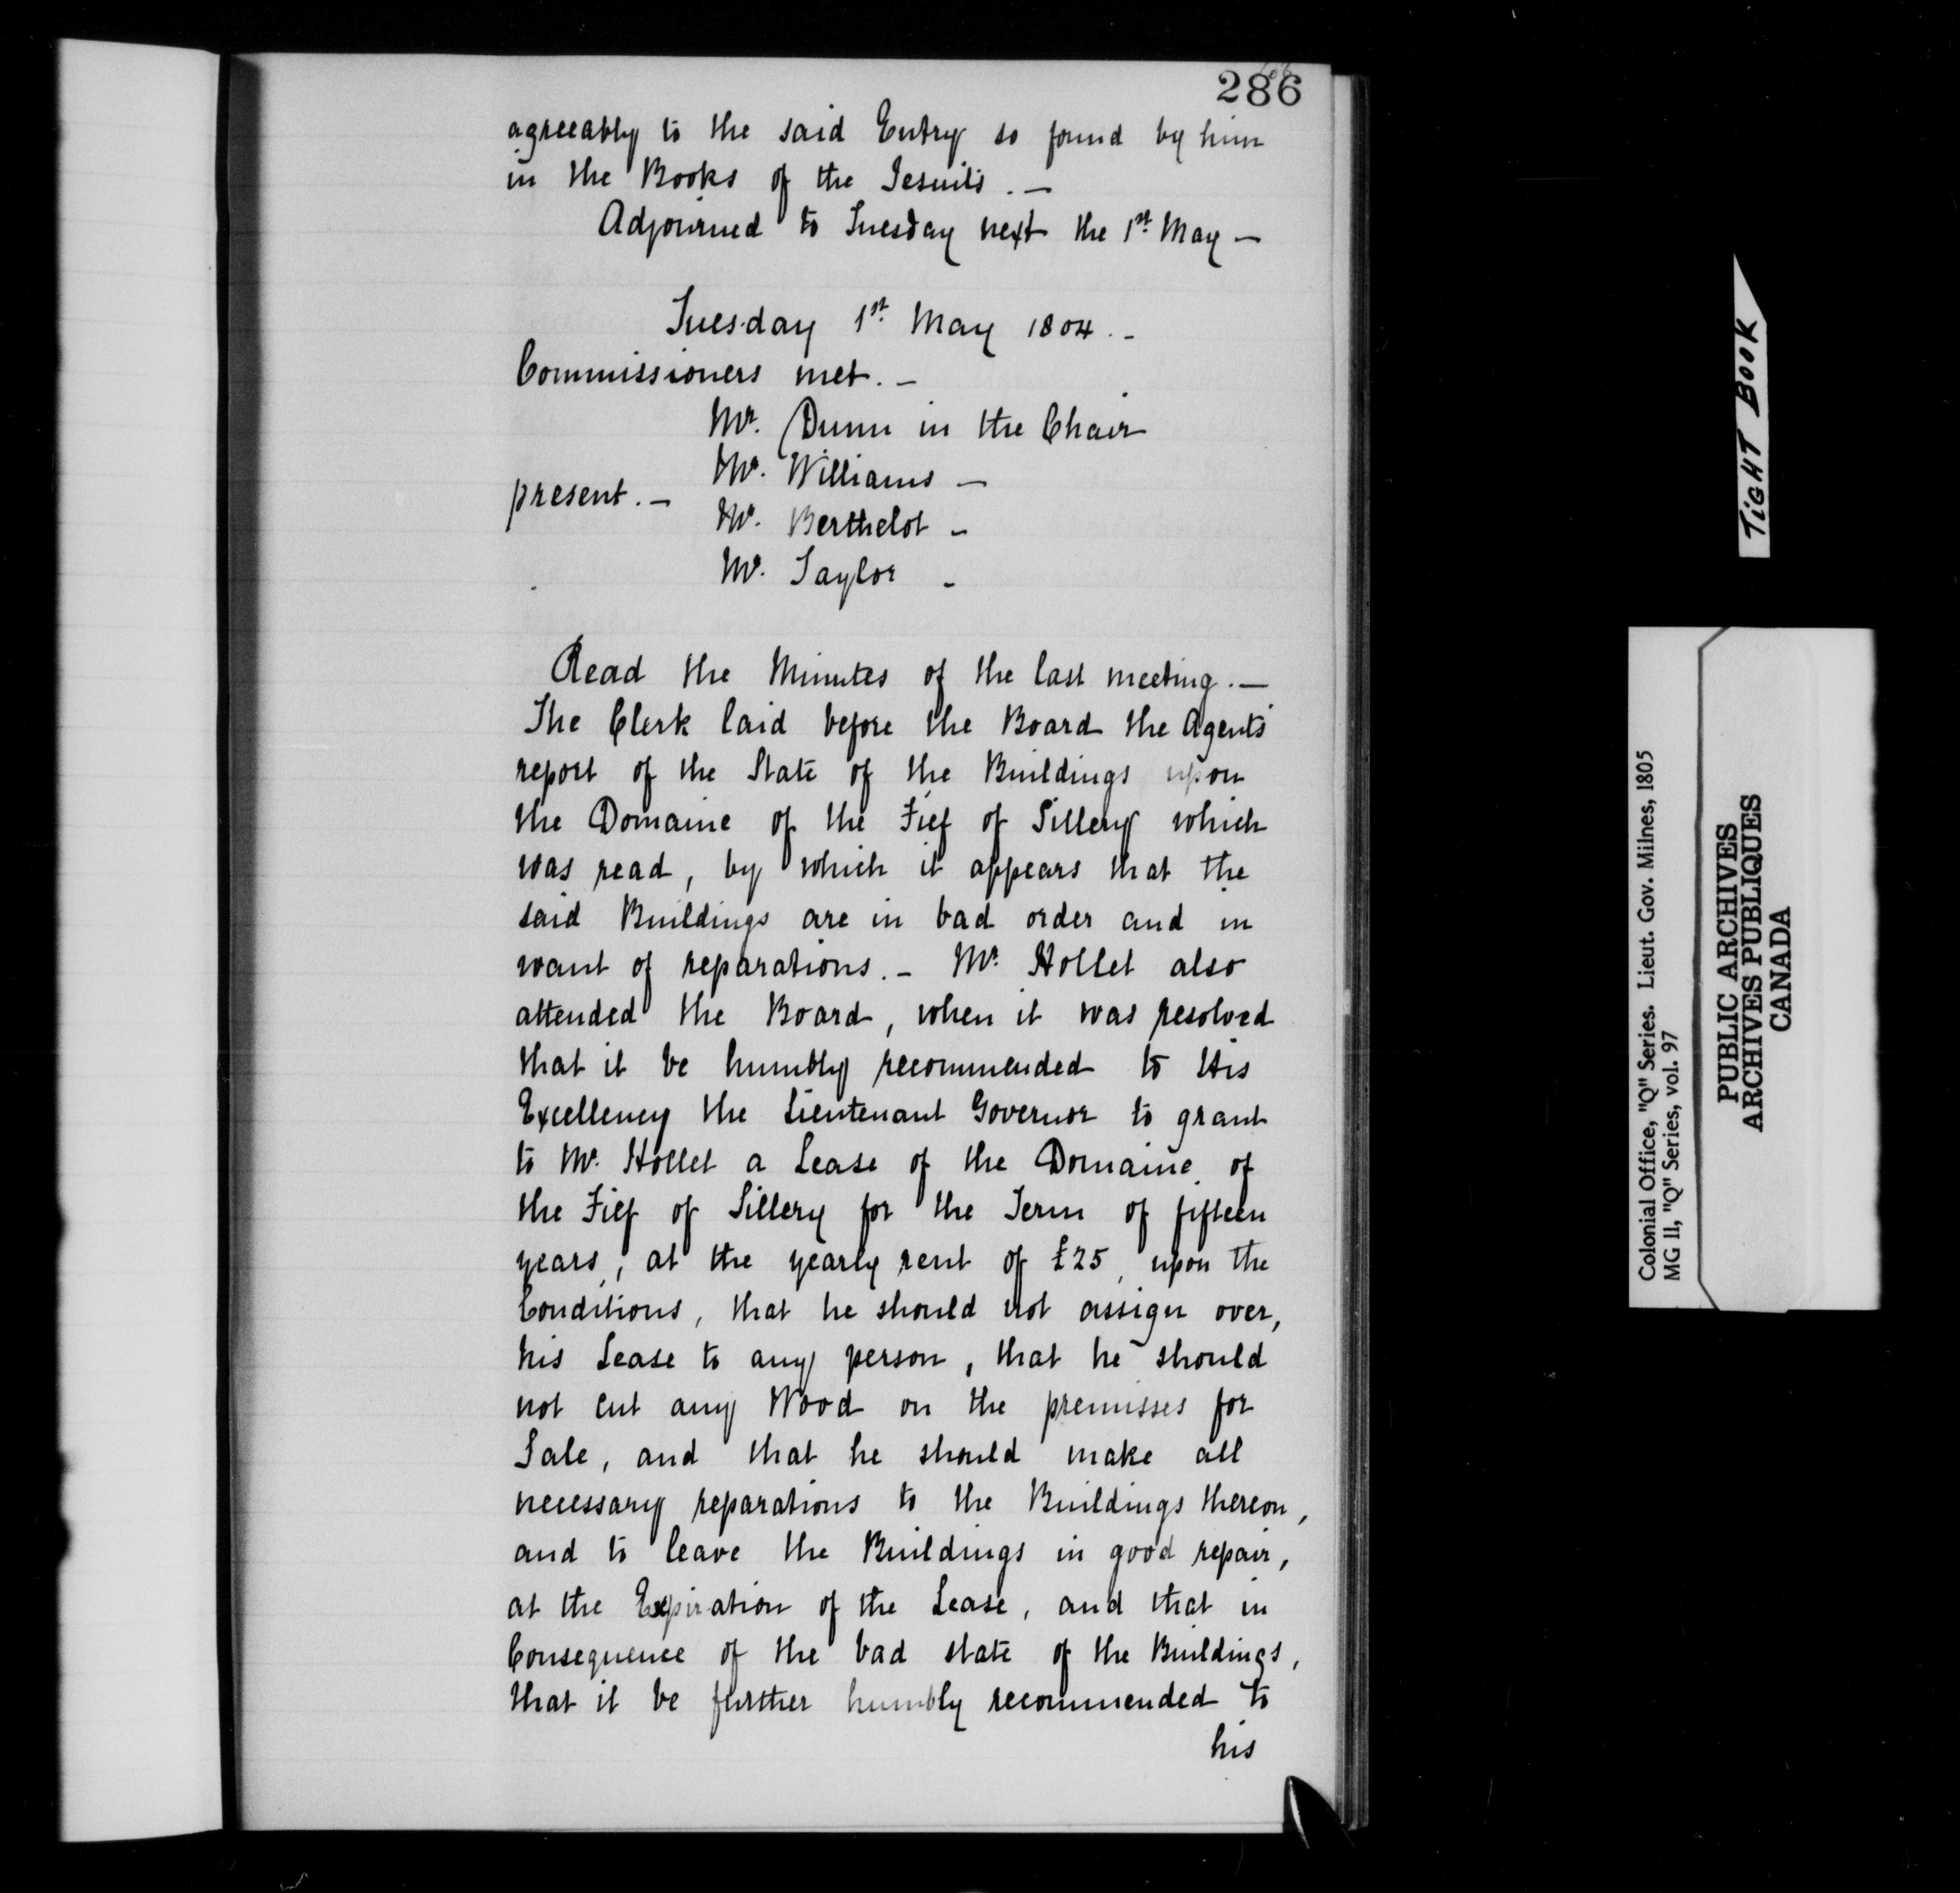 286
agreeably to the said Entry so found by him
in the Books of the Jesuits. —
Adjourned to Tuesday next the 1st May —
Tuesday 1st May 1804. -
Commissioners met. -
Mr. Dunn in the Chair
Mr. Williams —
present. -
Mr. Berthelot -
Mr. Taylor -
Read the Minutes of the last meeting. —
The Clerk laid before the Board the Agents
report of the State of the Buildings upon
the Domaine of the Fief of Sillery which
was read, by which it appears that the
said Buildings are in bad order and in
want of reparations. - Mr. Hollet also
attended the Board, when it was resolved
that it be humbly recommended to His
Excellency the Lieutenant Governor to grant
to Mr. Hollet a Lease of the Domaine of
the Fief of Sillery for the Term of fifteen
years, at the yearly rent of £25, upon the
Conditions, that he should not assign over,
his Lease to any person, that he should
not cut any Wood on the premisses for
Sale, and that he should make all
necessary reparations to the Buildings thereon,
and to leave the Buildings in good repair,
at the Expiration of the Lease, and that in
Consequence of the bad state of the Buildings,
that it be further humbly recommended to
his
TIGHT BOOK
Colonial Office, "Q" Series. Lieut. Gov. Milnes, 1805
MG 11, "Q" Series, vol. 97
PUBLIC ARCHIVES
ARCHIVES PUBLIQUES
CANADA